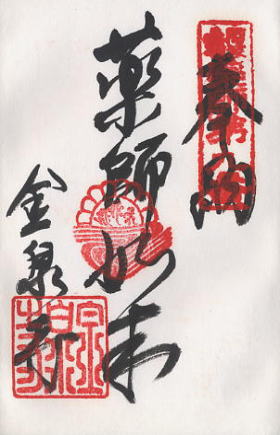 奉納
薬師如来
金泉寺